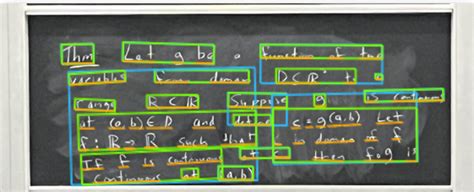 Thm Let g be a function of two
variables from domain D ⊂ ℝ² to
range R ⊂ ℝ Suppose g is continuous
at (a,b) ∈ D and let c = g(a,b) Let
f: ℝ → ℝ such that c is domain of f
If f is continuous at c then f∘g is
continuous at (a,b)